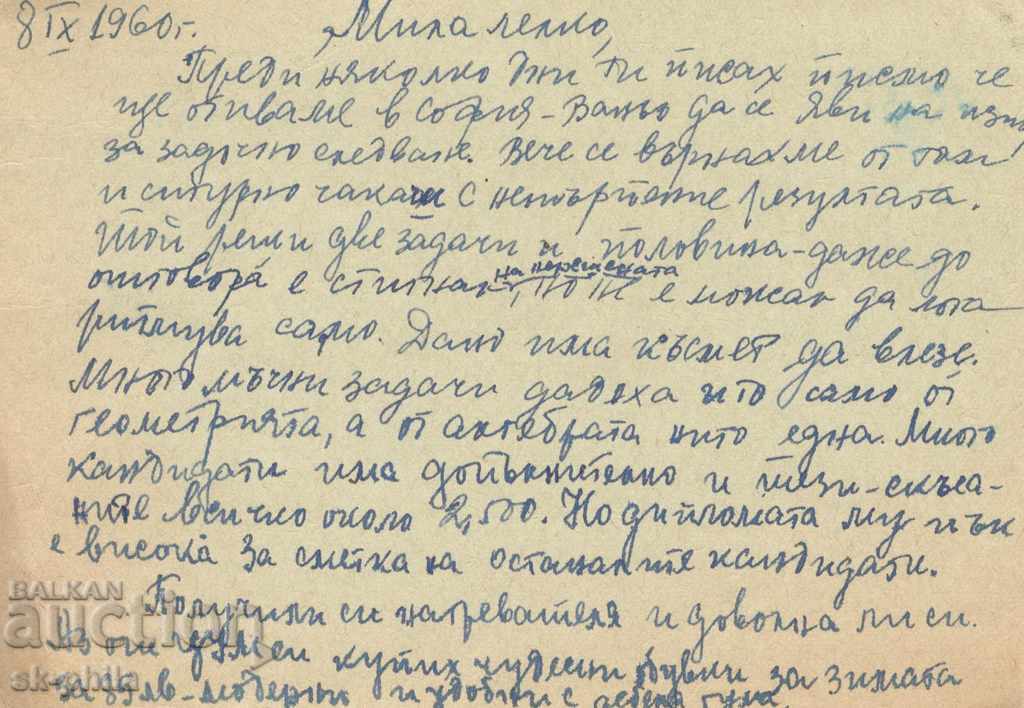 8 IX 1960 г. Мила лелко,
Преди няколко дни ти писах писмо че
ще отиваме в София - Ваньо да се яви на изпит
за задочно следване. Вече се върнахме от там
и сигурно чакаш с нетърпение резултата.
Той реши две задачи и половина - даже до
отговора е стигнал
на нерешената
е можал да
само. Дано има късмет да влезе.
Много мъчни задачи дадоха и то само от
геометрията, а от алгебрата нито една. Много
кандидати има допълнително и тези - скъса-
ните всичко около 2,500. Но дипломата му пък
е висока за сметка на останалите кандидати.
Получи ли си нагревателя и доволна ли си.
си купих чудесни обувки за зимата
модерни и удобни с гума
BALKAN
auction
sk-phila